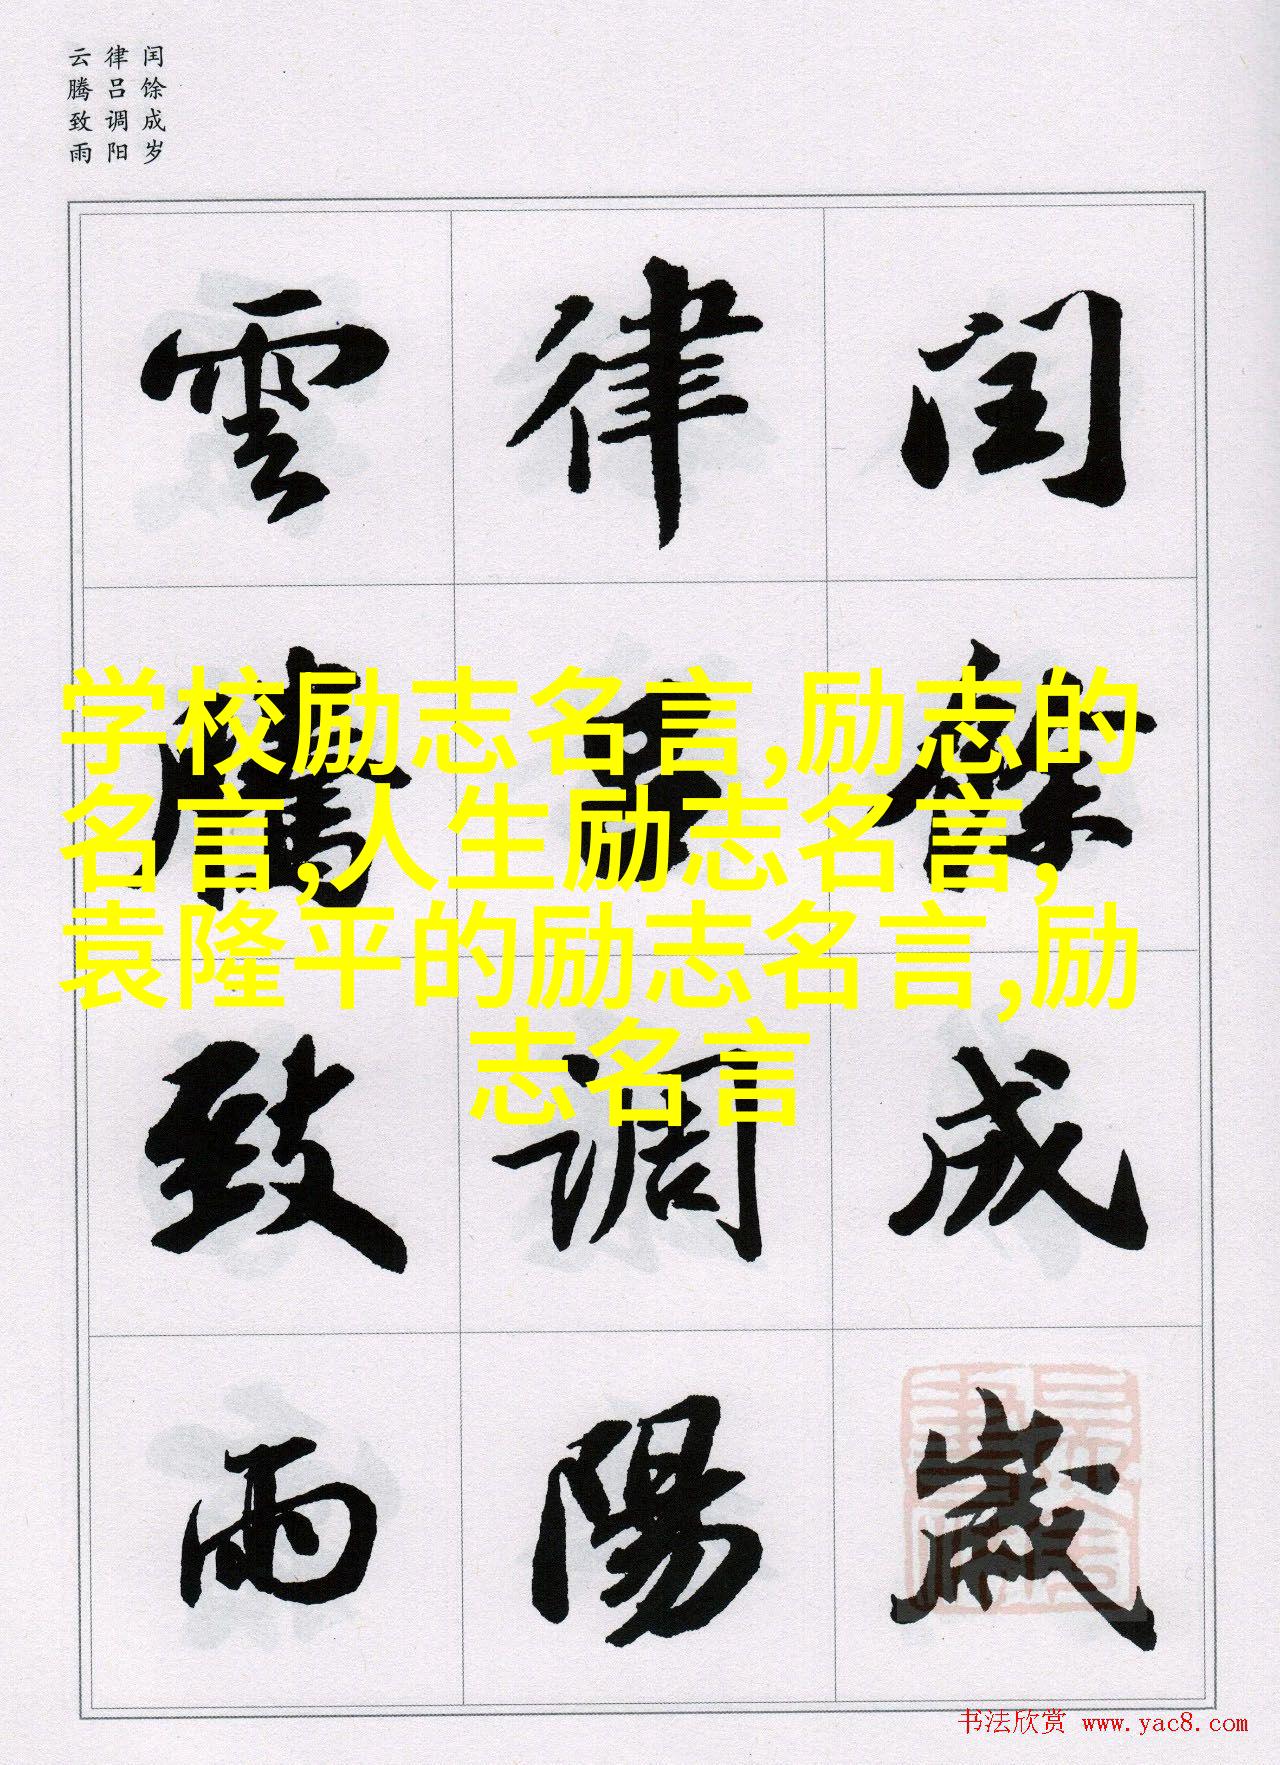 闰馀成岁
律吕调阳
云腾致雨
閏餘成歲
律吕調陽
雲騰致雨
学校励志名言,励志的
名言,人生励志名言,
袁隆平的励志名言,励
志名言
书法欣赏 www.yac8.com